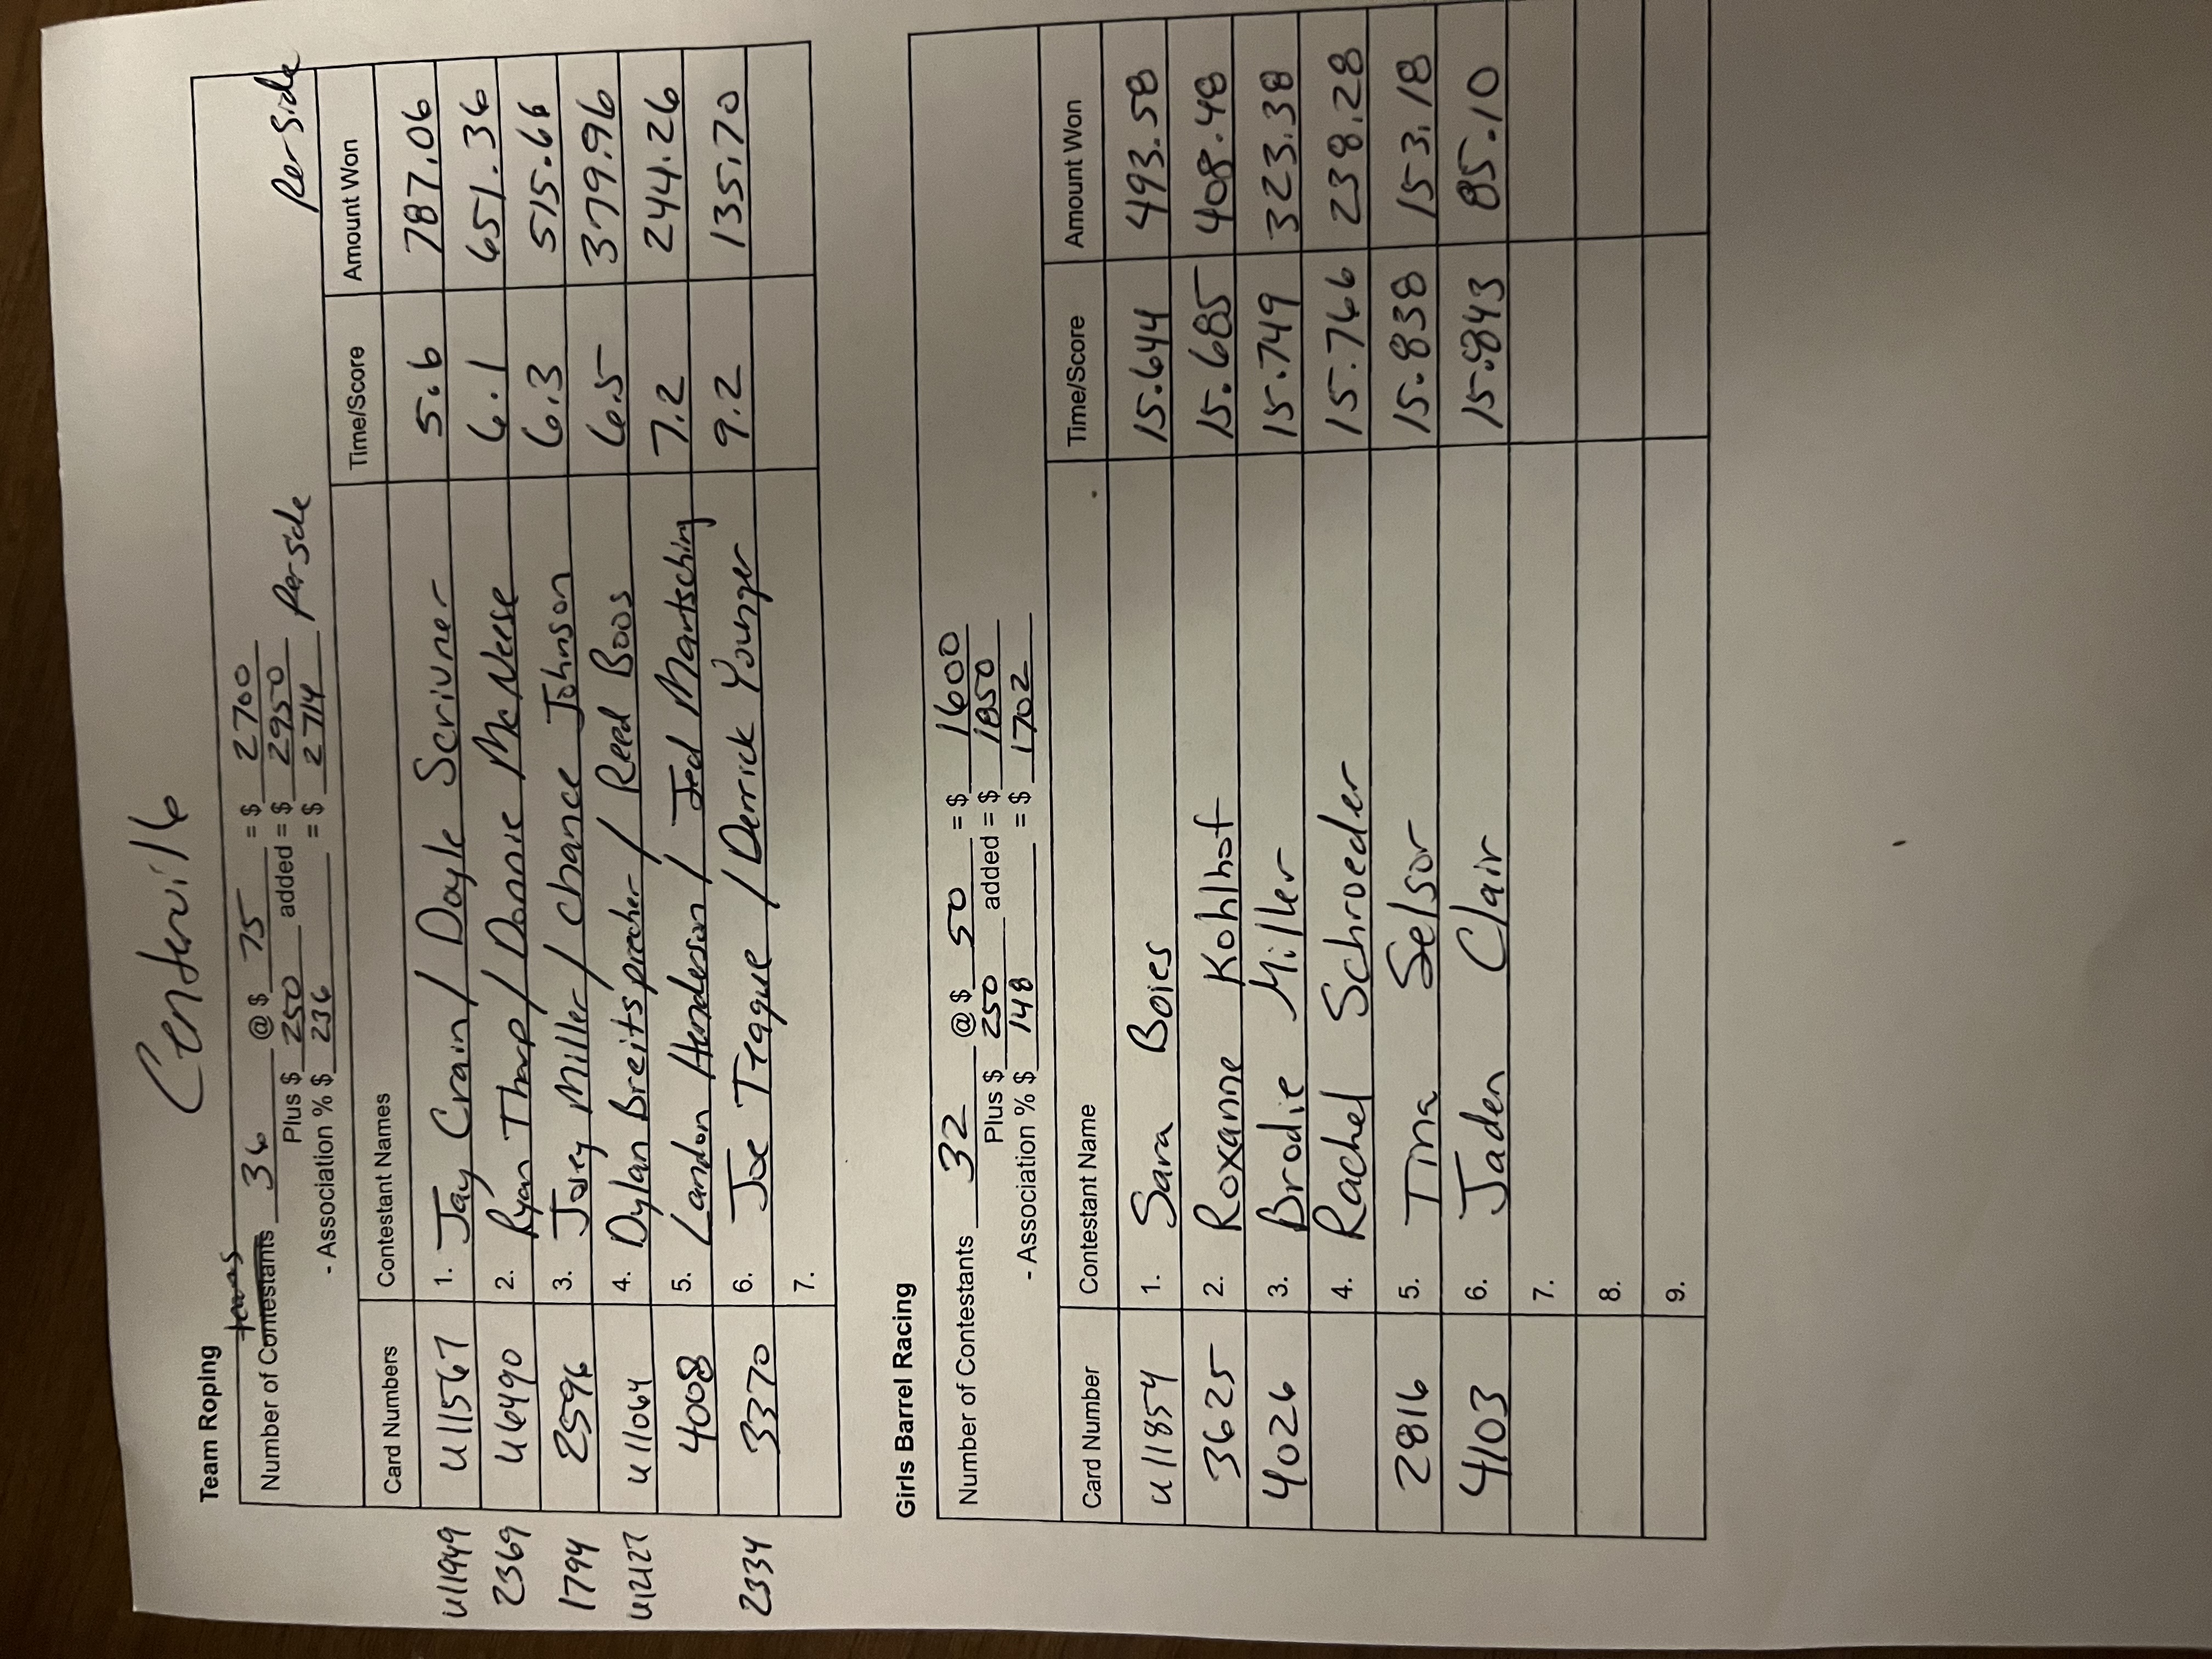 Centerville
Team Roping
teams
Number of Contestants 36 @ $ 75 = $ 2700
Plus $ 250 added = $ 2950
- Association % $ 236 = $ 2714 Per side Per side
Card Numbers Contestant Names Time/Score Amount Won
U11949 U11567 1. Jay Crain / Doyle Scrivner 5.6 787.06
2369 U6490 2. Ryan Tharp / Donnie McNeese 6.1 651.36
1794 2596 3. Josey Miller / Chance Johnson 6.3 515.66
U12127 U11064 4. Dylan Breitsprecher / Reed Boos 6.5 379.96
4008 5. Landon Henderson / Jed Martsching 7.2 244.26
2334 3370 6. Joe Teague / Derrick Younger 9.2 135.70
7.
Girls Barrel Racing
Number of Contestants 32 @ $ 50 = $ 1600
Plus $ 250 added = $ 1850
- Association % $ 148 = $ 1702
Card Number Contestant Name Time/Score Amount Won
U11854 1. Sara Boies 15.644 493.58
3625 2. Roxanne Kohlhof 15.685 408.48
4026 3. Brodie Miller 15.749 323.38
4. Rachel Schroeder 15.766 238.28
2816 5. Tina Selsor 15.838 153.18
4103 6. Jaden Clair 15.843 85.10
7.
8.
9.